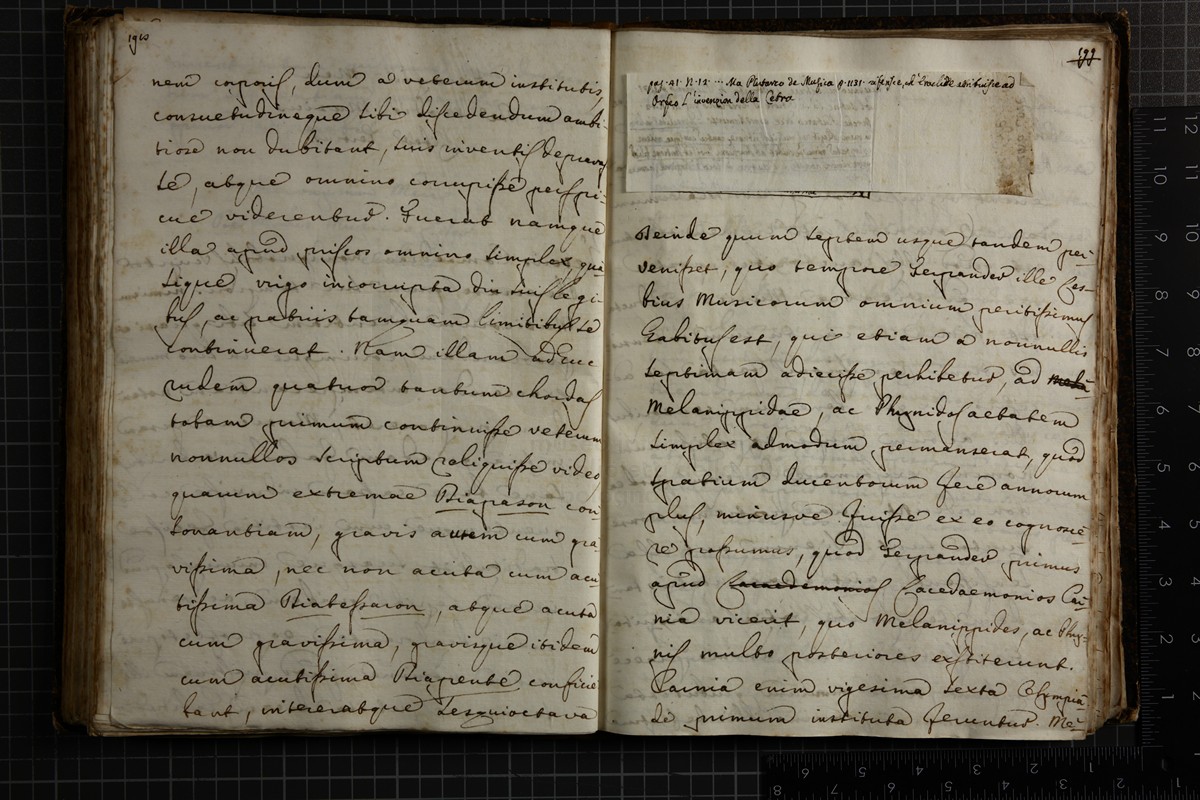 nem corporis, dum a veterum institutis,
consuetudineque sibi discedendum ambi-
tiose non dubitant, suis inventis deprava-
te, atque omnino corrupisse perspi-
cue viderentur. Fuerat namque
illa apud priscos omnino simplex, qua-
sique virgo incorrupta diu suis legi-
bus, ac patriis tamquam limitibus se
continuerat. Nam illam adhuc
rudem quatuor tantum chordas
totam primum continuisse veterum
nonnullos scriptum reliquisse video
quarum extremae Diapason con-
sonantiam, gravis autem cum gra-
vissima, nec non acuta cum acu-
tissima Diatessaron, atque acuta
cum gravissima, gravisque itidem
cum acutissima Diapente conficie-
bant, intereratque sesquioctava
199
pag. 41. N. 12 ... Ma Plutarco de Musica p. 1131. ad
Orfeo L'invenzion della Cetra
Deinde quum septem usque tandem per-
venisset, quo tempore Terpander ille Les-
bius Musicorum omnium peritissimus
habitus est, qui etiam a nonnullis
septimam adiecisse perhibetur, ad
Melanippidae, ac Phrynidos aetatem
simplex admodum permanserat, quod
spatium ducentorum fere annorum
plus, minusve fuisse ex eo cognosce-
re possumus, quod Terpander primus
apud Lacaedemonios Lacedaemonios Car-
nia vicerit, quo Melanippides, ac Phry-
nis multo posteriores exstiterunt.
Carnia enim vigesima sexta Olympia-
de primum instituta feruntur. Me-